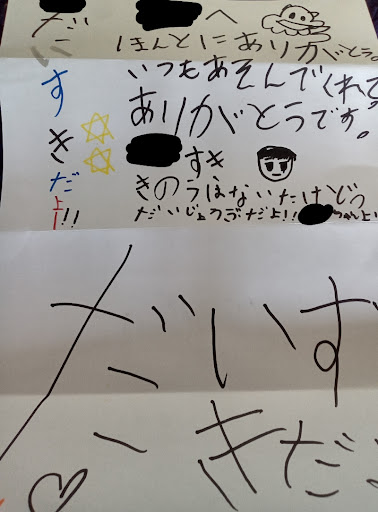 へ
ほんとにありがとう。
いつもあそんでくれて
ありがとうです。
すき
きのうほないたけどっ
だいじょうぶだよ!!
だいすきだよー!!
だいす
きだ